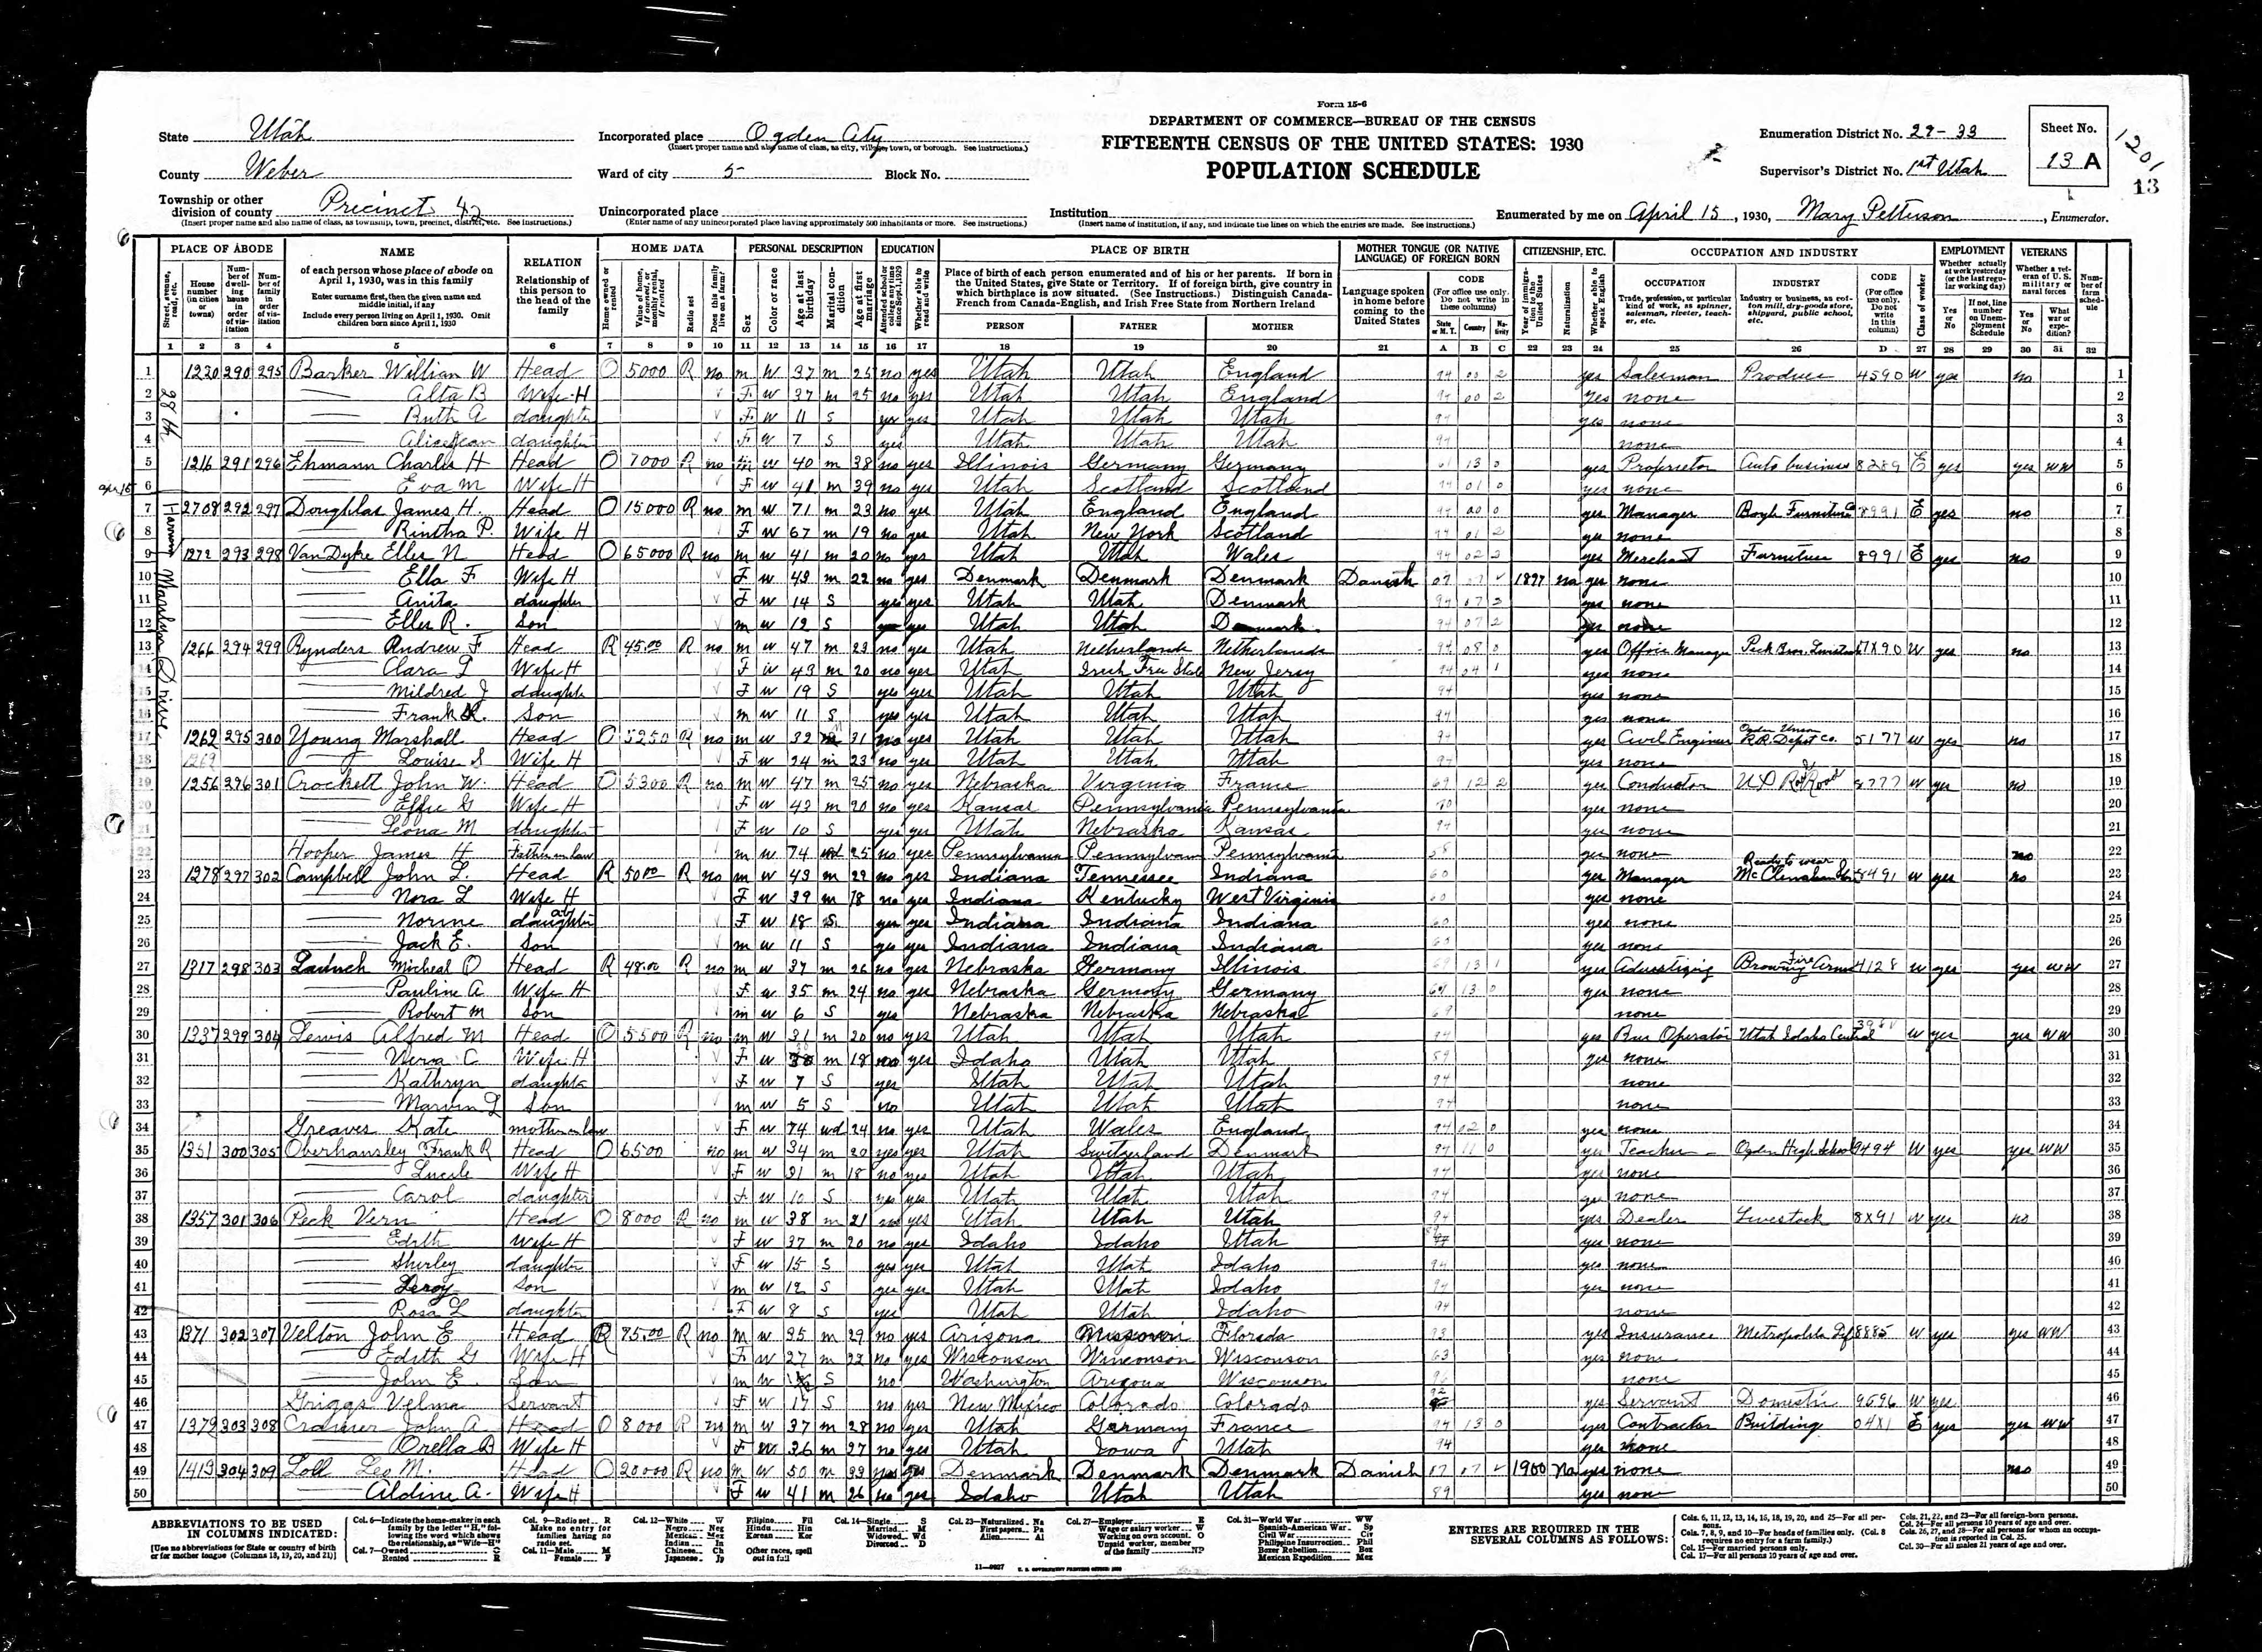 Form 15-6
DEPARTMENT OF COMMERCE—BUREAU OF THE CENSUS
FIFTEENTH CENSUS OF THE UNITED STATES: 1930
POPULATION SCHEDULE
State Utah
County Weber
Township or other division of county Precinct 42
(Insert proper name and also name of class, as township, town, precinct, district, etc. See instructions.)
Incorporated place Ogden City
(Insert proper name and also name of class, as city, village, town, or borough. See instructions.)
Ward of city 5 Block No.
Unincorporated place
(Enter name of any unincorporated place having approximately 500 inhabitants or more. See instructions.)
Institution
(Insert name of institution, if any, and indicate the lines on which the entries are made. See instructions.)
Enumeration District No. 29-33
Supervisor's District No. 1st Utah
Sheet No. 13 A
1201
13
Enumerated by me on April 15, 1930, Mary Petterson, Enumerator.
PLACE OF ABODE NAME RELATION HOME DATA PERSONAL DESCRIPTION EDUCATION PLACE OF BIRTH MOTHER TONGUE (OR NATIVE LANGUAGE) OF FOREIGN BORN CITIZENSHIP, ETC. OCCUPATION AND INDUSTRY EMPLOYMENT VETERANS
PERSON FATHER MOTHER
28 th
Harrison
Marilyn Drive
1 1220 290 295 Barker William W Head O 5000 R no m W 37 m 25 no yes Utah Utah England 94 00 2 yes Salesman Produce 4590 W yes no 1
2 Alta B Wife-H F W 37 m 25 no yes Utah Utah England 94 00 2 yes none 2
3 Ruth A daughter F W 11 S yes yes Utah Utah Utah 94 yes none 3
4 Alice Jean daughter F W 7 S yes Utah Utah Utah 94 none 4
5 1216 291 296 Ehmann Charles H Head O 7000 R no m W 40 m 38 no yes Illinois Germany Germany 61 13 0 yes Proprietor Auto business 8289 E yes yes WW 5
6 Eva M Wife H F W 41 m 39 no yes Utah Scotland Scotland 94 01 0 yes none 6
7 2708 292 297 Doughlas James H. Head O 15000 R no m W 71 m 23 no yes Utah England England 94 00 0 yes Manager Boyle Furniture Co 8991 E yes no 7
8 Rintha P. Wife H F W 67 m 19 no yes Utah New York Scotland 94 01 2 yes none 8
9 1272 293 298 VanDyke Elles N Head O 65000 R no m W 41 m 20 no yes Utah Utah Wales 94 02 2 yes Merchant Furniture 8991 E yes no 9
10 Ella F Wife H F W 43 m 22 no yes Denmark Denmark Denmark Danish 07 1897 na yes none 10
11 Anita daughter F W 14 S yes yes Utah Utah Denmark 94 07 2 yes none 11
12 Elles R. Son m W 12 S yes yes Utah Utah Denmark 94 07 2 yes none 12
13 1266 294 299 Rynders Andrew F Head R 45.00 R no m W 47 m 23 no yes Utah Netherlands Netherlands 94 08 0 yes Office Manager Peck Bros. Livestock 7X90 W yes no 13
14 Clara L Wife H F W 43 m 20 no yes Utah Irish Free State New Jersey 94 04 1 yes none 14
15 Mildred J daughter F W 19 S yes yes Utah Utah Utah 94 yes none 15
16 Frank R. Son m W 11 S yes yes Utah Utah Utah 94 yes none 16
17 1262 295 300 Young Marshall Head O 5250 R no m W 32 m 31 no yes Utah Utah Utah 94 yes Civil Engineer Ogden Union R.R. Depot Co. 5177 W yes no 17
18 1269 Louise S Wife H F W 24 m 23 no yes Utah Utah Utah 94 yes none 18
19 1256 296 301 Crockett John W. Head O 5300 R no m W 47 m 25 no yes Nebraska Virginia France 69 12 2 yes Conductor U P Rail Road 8777 W yes no 19
20 Effie G Wife H F W 42 m 20 no yes Kansas Pennsylvania Pennsylvania 70 yes none 20
21 Leona M daughter F W 10 S yes yes Utah Nebraska Kansas 94 yes none 21
22 Hooper James H Father in law m W 74 wd 25 no yes Pennsylvania Pennsylvania Pennsylvania 58 yes none no 22
23 1278 297 302 Campbell John L. Head R 50.00 R no m W 43 m 22 no yes Indiana Tennessee Indiana 60 yes Manager Ready to wear McClenahan 8491 W yes no 23
24 Nora L Wife H F W 39 m 18 no yes Indiana Kentucky West Virginia 60 yes none 24
25 Norine daughter F W 18 S yes yes Indiana Indiana Indiana 60 yes none 25
26 Jack E. Son m W 11 S yes yes Indiana Indiana Indiana 60 yes none 26
27 1317 298 303 Micheal O Head R 48.00 R no m W 37 m 26 no yes Nebraska Germany Illinois 69 13 1 yes Advertizing Browning Fire Arms 4128 W yes yes WW 27
28 Pauline A Wife H F W 35 m 24 no yes Nebraska Germany Germany 69 13 0 yes none 28
29 Robert M Son m W 6 S yes Nebraska Nebraska Nebraska 69 none 29
30 1337 299 304 Lewis Alfred M Head O 5500 R no m W 31 m 20 no yes Utah Utah Utah 94 yes Bus Operator Utah Idaho Central W yes yes WW 30
31 Vera C Wife H F W 30 m 18 no yes Idaho Utah Utah 89 yes none 31
32 Kathryn daughter F W 7 S yes Utah Utah Utah 94 none 32
33 Marvin L Son m W 5 S no Utah Utah Utah 94 none 33
34 Greaves Kate mother in law F W 74 wd 24 no yes Utah Wales England 94 02 0 yes none 34
35 1351 300 305 Oberhansley Frank R Head O 6500 no m W 34 m 20 yes yes Utah Switzerland Denmark 94 11 0 yes Teacher Ogden High School 9494 W yes yes WW 35
36 Lucile Wife H F W 31 m 18 no yes Utah Utah Utah 94 yes none 36
37 Carol daughter F W 10 S yes yes Utah Utah Utah 94 yes none 37
38 1357 301 306 Peck Vern Head O 8000 R no m W 38 m 21 no yes Utah Utah Utah 94 yes Dealer Livestock 8X91 W yes no 38
39 Edith Wife H F W 37 m 20 no yes Idaho Idaho Utah yes none 39
40 Shirley daughter F W 15 S yes yes Utah Utah Idaho 94 yes none 40
41 Leroy Son m W 12 S yes yes Utah Utah Idaho 94 yes none 41
42 Rosa L daughter F W 8 S yes Utah Utah Idaho 94 none 42
43 1371 302 307 Velton John E Head R 75.00 R no m W 35 m 29 no yes Arizona Missouri Florida 93 yes Insurance Metropolitan Life 8885 W yes yes WW 43
44 Edith G Wife H F W 27 m 22 no yes Wisconson Winconson Wisconson 63 yes none 44
45 John E. Son m W S no Washington Arizona Wisconson 96 none 45
46 Griggs Velma Servant F W 17 S no yes New Mexico Colorado Colorado 92 yes Servant Domestic 9596 W yes 46
47 1379 303 308 John A Head O 8000 R no m W 37 m 28 no yes Utah Germany France 94 13 0 yes Contractor Building 04X1 E yes yes WW 47
48 Orella B Wife H F W 36 m 27 no yes Utah Iowa Utah 94 yes none 48
49 1413 304 309 Loll Leo M. Head O 20000 R no m W 50 m 33 yes yes Denmark Denmark Denmark Danish 07 07 1900 Na yes none no 49
50 Aldine A. Wife H F W 41 m 26 no yes Idaho Utah Utah 89 yes none 50
ABBREVIATIONS TO BE USED IN COLUMNS INDICATED:
[Use no abbreviations for State or country of birth or for mother tongue (Columns 18, 19, 20, and 21)]
ENTRIES ARE REQUIRED IN THE SEVERAL COLUMNS AS FOLLOWS:
11—9927